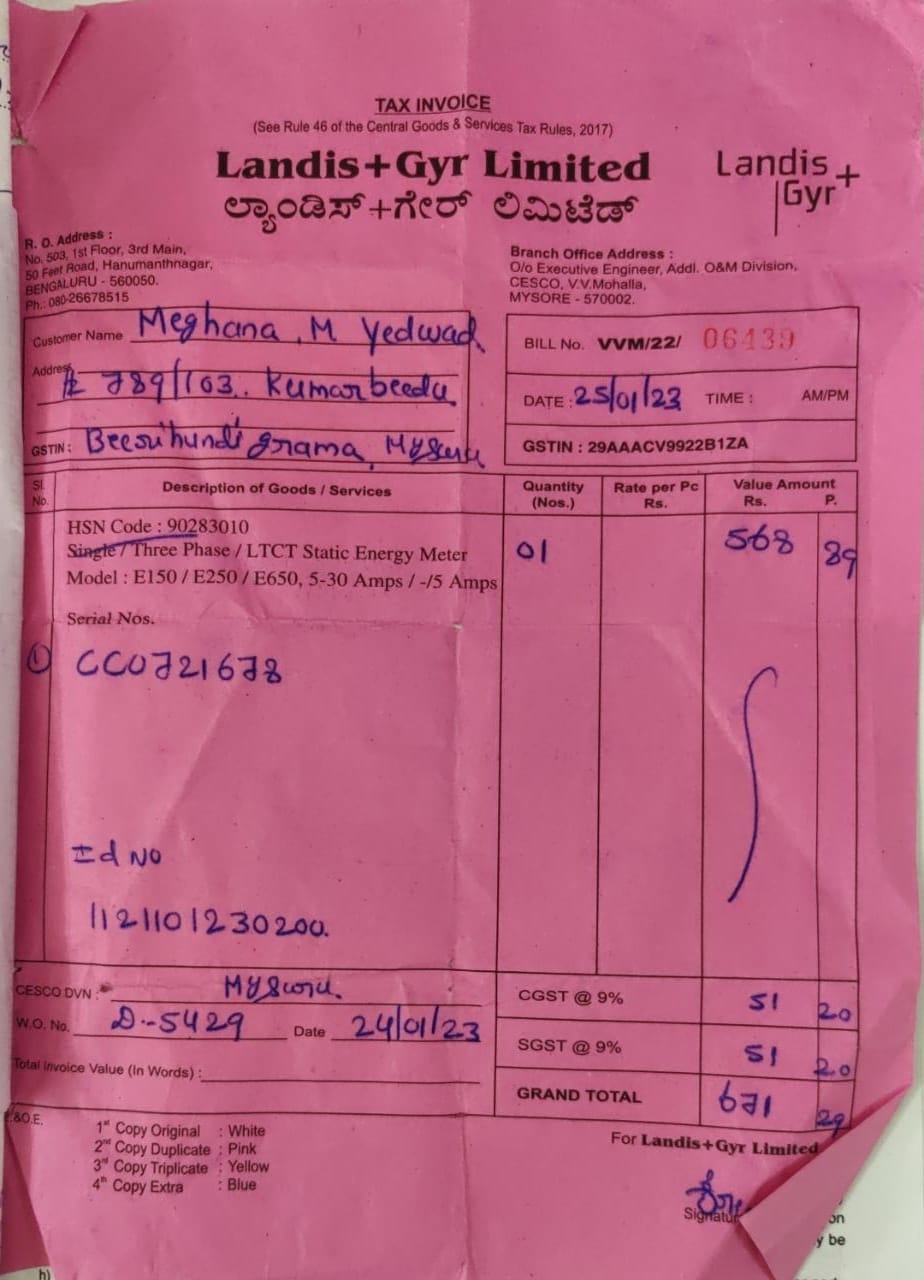 TAX INVOICE
(See Rule 46 of the Central Goods & Services Tax Rules, 2017)
Landis+Gyr Limited
ಲ್ಯಾಂಡಿಸ್+ಗೇರ್ ಲಿಮಿಟೆಡ್
Landis+
Gyr
R. O. Address :
No. 503, 1st Floor, 3rd Main,
50 Feet Road, Hanumanthnagar,
BENGALURU - 560050.
Ph.: 080-26678515
Branch Office Address :
O/o Executive Engineer, Addl. O&M Division,
CESCO, V.V.Mohalla,
MYSORE - 570002.
Customer Name Meghana .M Yedwad
Address # 789/103. Kumarbeedu
GSTIN : Beerihundi grama, Mysuru
BILL No. VVM/22/ 06439
DATE : 25/01/23 TIME : AM/PM
GSTIN : 29AAACV9922B1ZA
Sl. No. Description of Goods / Services Quantity (Nos.) Rate per Pc Rs. Value Amount Rs. P.
HSN Code : 90283010
Single / Three Phase / LTCT Static Energy Meter 01 568 89
Model : E150 / E250 / E650, 5-30 Amps / -/5 Amps
Serial Nos.
① CC0721678
Id No
1121101230200.
CESCO DVN : Mysuru.
W.O. No. D.-5429 Date 24/01/23
Total Invoice Value (In Words) :
CGST @ 9% 51 20
SGST @ 9% 51 20
GRAND TOTAL 671 29
E.&O.E.
1st Copy Original : White
2nd Copy Duplicate : Pink
3rd Copy Triplicate : Yellow
4th Copy Extra : Blue
For Landis+Gyr Limited
Signatur
on
y be
h)